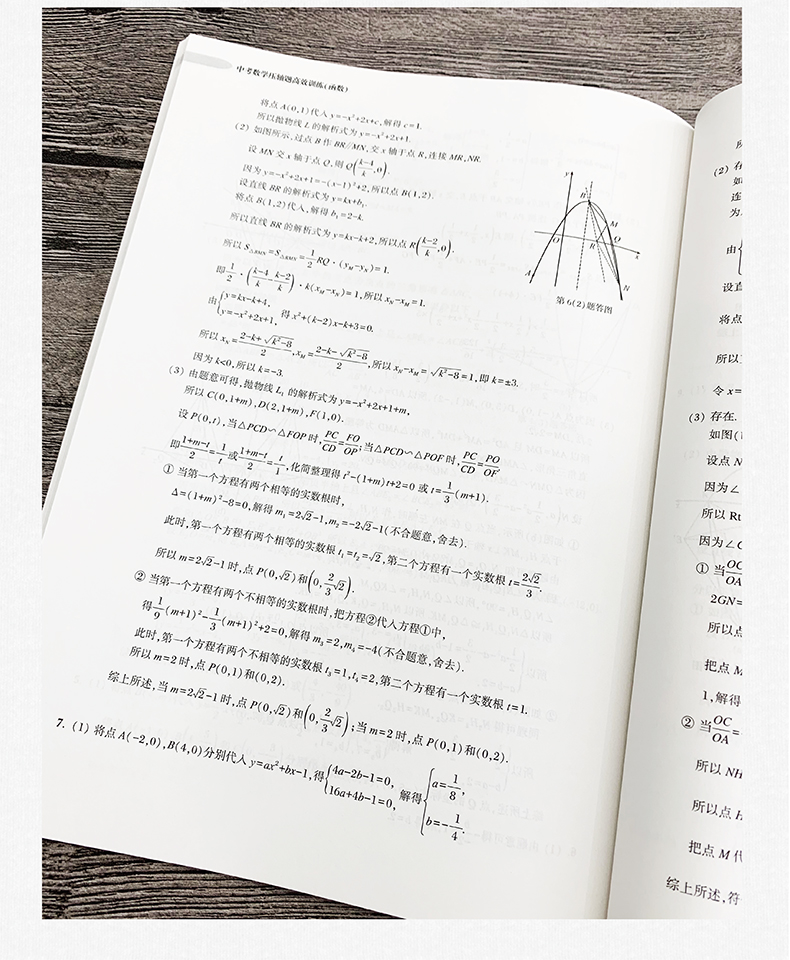 中考数学压轴题高效训练(函数)
将点A(0,1)代入y=-x²+2x+c,解得c=1.
所以抛物线L的解析式为y=-x²+2x+1.
(2) 如图所示,过点B作BR∥MN,交x轴于点R,连接MR,NR.
设MN交x轴于点Q,则Q((k-4)/k,0).
因为y=-x²+2x+1=-(x-1)²+2,所以点B(1,2).
设直线BR的解析式为y=kx+b₁.
将点B(1,2)代入,解得b₁=2-k.
所以直线BR的解析式为y=kx-k+2,所以点R((k-2)/k,0).
所以S△BMN=S△RMN=1/2RQ·(yM-yN)=1.
即1/2·((k-4)/k-(k-2)/k)·k(xM-xN)=1,所以xN-xM=1.
由{y=kx-k+4, y=-x²+2x+1, 得x²+(k-2)x-k+3=0.
所以xN=(2-k+√(k²-8))/2,xM=(2-k-√(k²-8))/2,所以xN-xM=√(k²-8)=1,即k=±3.
因为k<0,所以k=-3.
(3) 由题意可得,抛物线L₁的解析式为y=-x²+2x+1+m,
所以C(0,1+m),D(2,1+m),F(1,0).
设P(0,t),当△PCD∽△FOP时,PC/CD=FO/OP;当△PCD∽△POF时,PC/CD=PO/OF.
即(1+m-t)/2=1/t或(1+m-t)/2=t/1,化简整理得t²-(1+m)t+2=0或t=1/3(m+1).
① 当第一个方程有两个相等的实数根时,
Δ=(1+m)²-8=0,解得m₁=2√2-1,m₂=-2√2-1(不合题意,舍去).
此时,第一个方程有两个相等的实数根t₁=t₂=√2,第二个方程有一个实数根t=2√2/3.
所以m=2√2-1时,点P(0,√2)和(0,2/3√2).
② 当第一个方程有两个不相等的实数根时,把方程②代入方程①中,
得1/9(m+1)²-1/3(m+1)²+2=0,解得m₃=2,m₄=-4(不合题意,舍去).
此时,第一个方程有两个不相等的实数根t₃=1,t₄=2,第二个方程有一个实数根t=1.
所以m=2时,点P(0,1)和(0,2).
综上所述,当m=2√2-1时,点P(0,√2)和(0,2/3√2);当m=2时,点P(0,1)和(0,2).
7. (1) 将点A(-2,0),B(4,0)分别代入y=ax²+bx-1,得{4a-2b-1=0, 16a+4b-1=0, 解得{a=1/8, b=-1/4.
y
B
M
O
R
Q
x
A
N
第6(2)题答图
(2) 存
如
连
为
由
设直
将点
所以
令x=
(3) 存在.
如图(
设点N
因为∠
所以Rt
因为∠
① 当OC/OA
2GN=
所以点
把点M
1,解得
② 当OC/OA=
所以NH
所以点
把点M代
综上所述,符